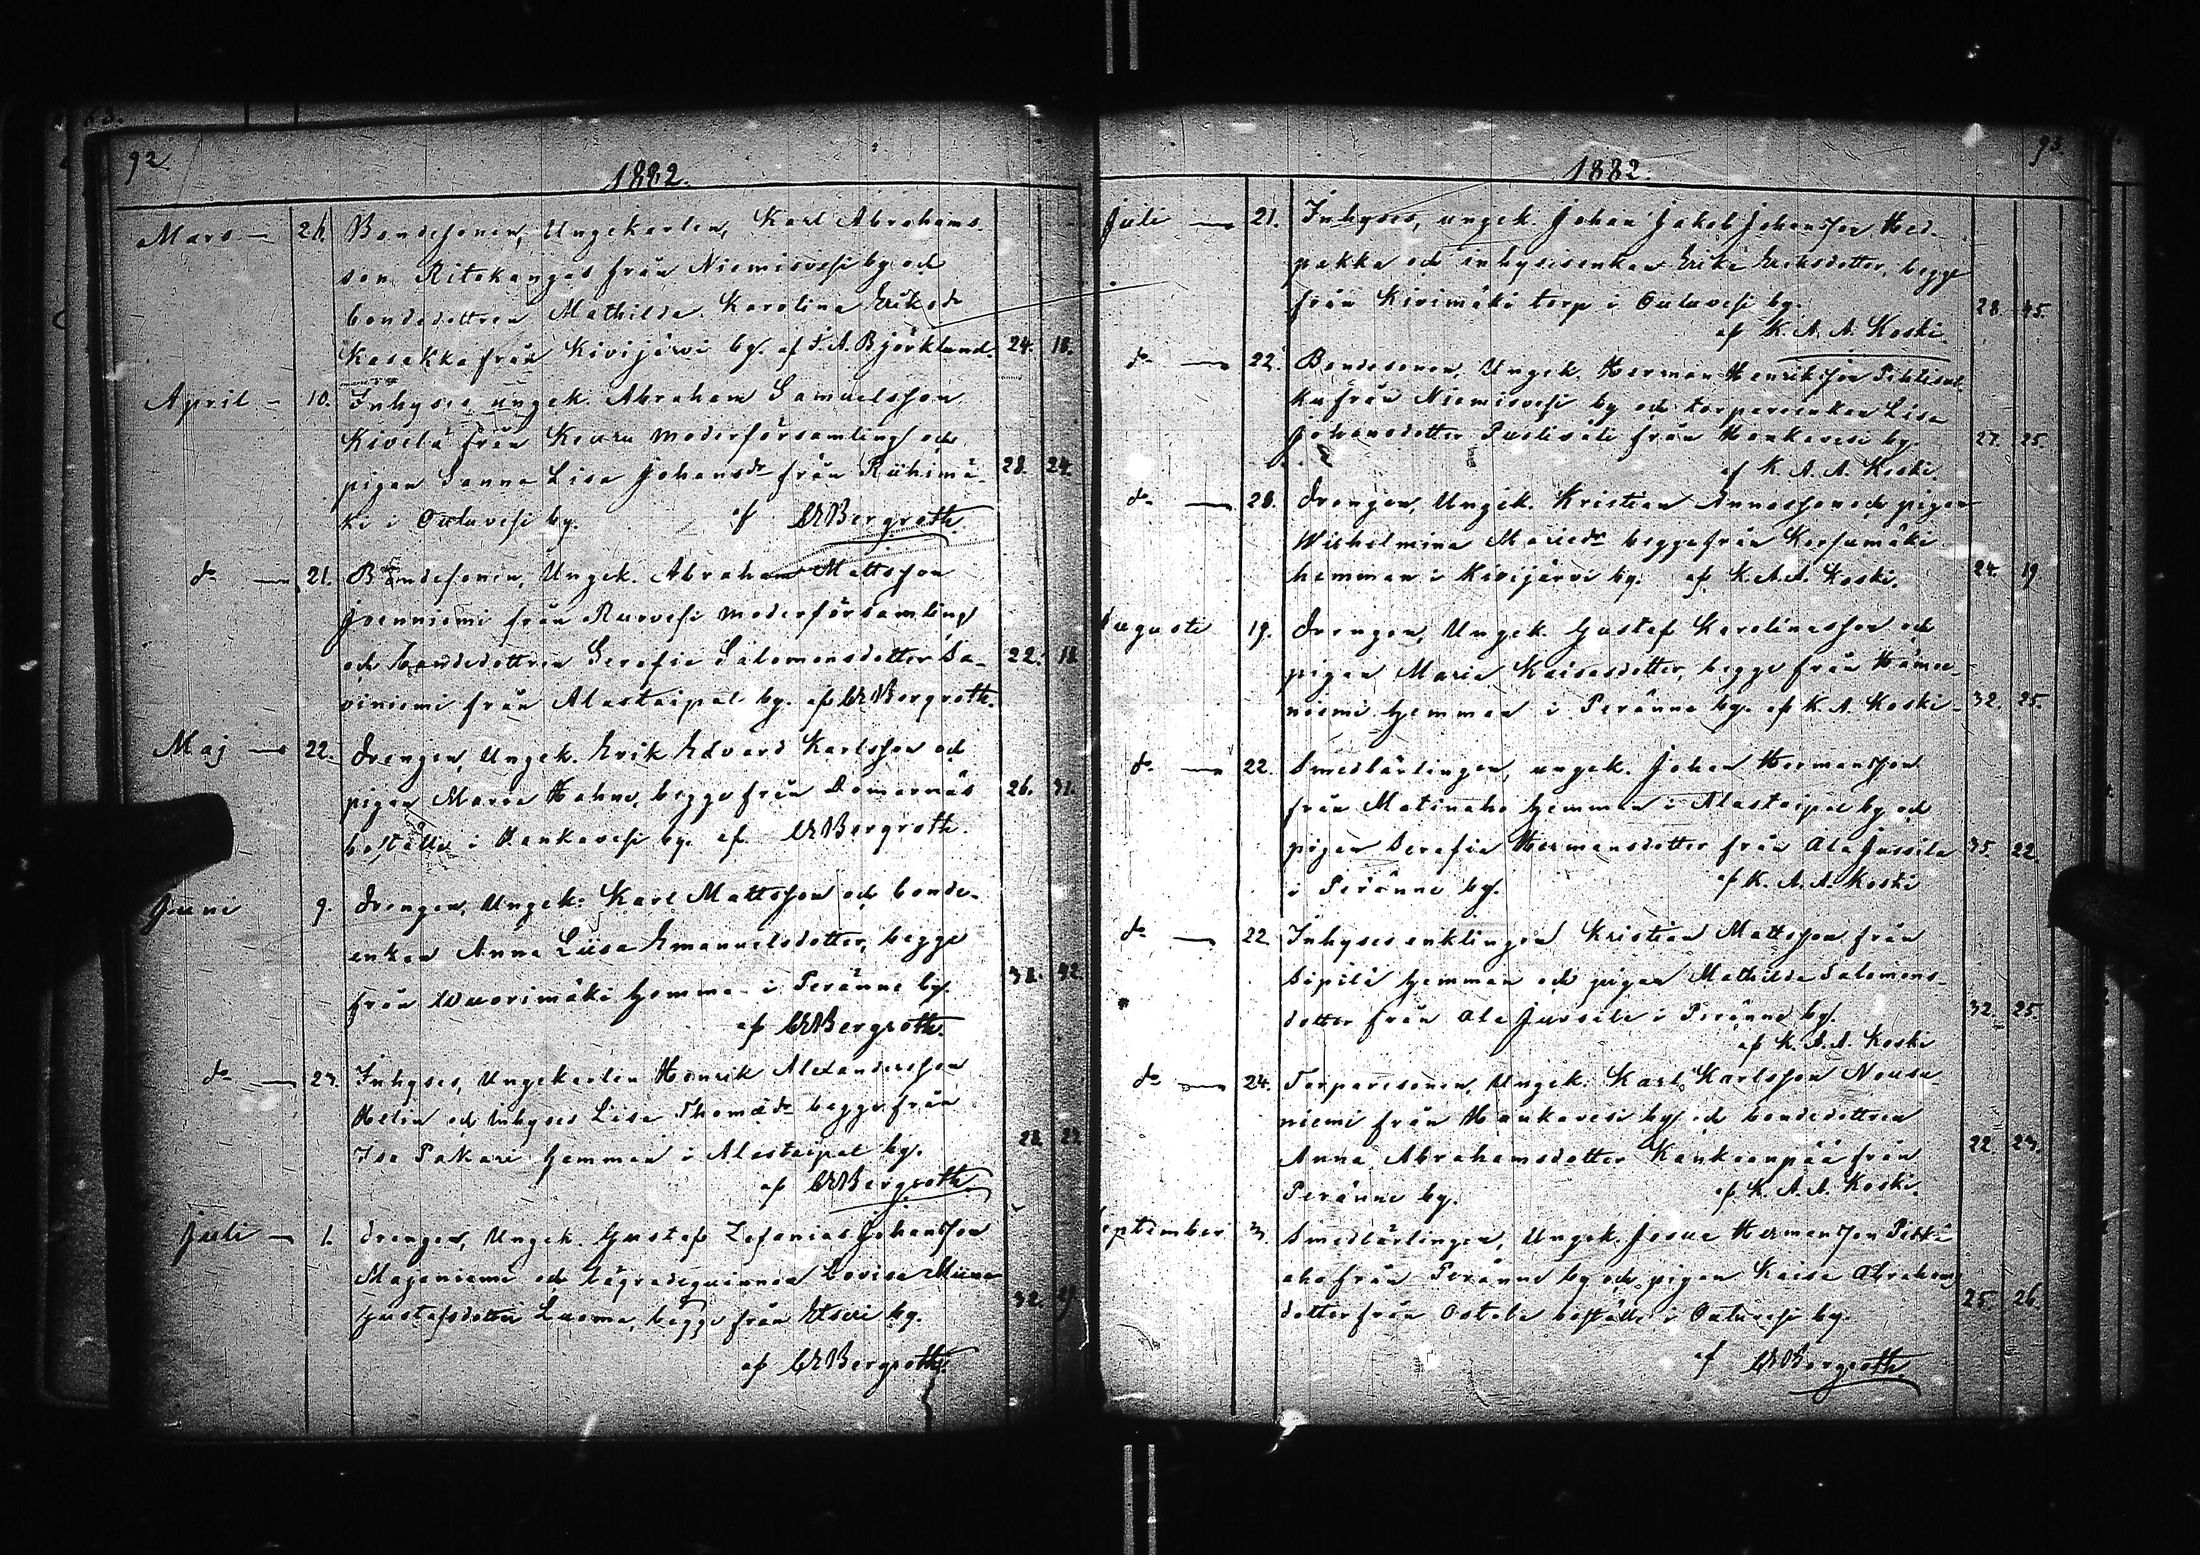 92
1882.
Mars — 26. Bondesonen, Ungekarlen, Karl Abrahams-
son Ritakangas från Niemisvesi by och
bondedottren Mathilda Karolina Eriksdr
Kasakka från Kivijärvi by. af S. A. Björklund. 24. 18.
April — 10. Inhyses ungek. Abraham Samuelsson
Kivelä från Keuru moderförsamling och
pigan Sanna Lisa Johansdr från Riihimä- 28. 24.
ki i Ouluvesi by. af CEBergroth.
do — 21. Bondesonen, Ungek. Abraham Mattsson
Joenniemi från Ruovesi moderförsamling
och bondedottren Serafia Salomonsdotter Sa- 22. 18.
viniemi från Alastaipal by. af CEBergroth.
Maj — 22. Drengen, Ungek. Erik Edvard Karlsson och
pigan Maria Hahne, begge från Domarnäs 26. 31.
boställe i Hankavesi by. af CEBergroth.
Juni 9. Drengen, Ungek. Karl Mattsson och bonde-
enkan Anna Liisa Emanuelsdotter, begge
från Wuorimäki hemman i Peränne by. 38. 42.
af CEBergroth.
do — 23. Inhyses, Ungekarlen Henrik Alexandersson
Helin och inhyses Lisa Thomasdr begge från
Iso Pakari hemman i Alastaipal by. 28.
af CEBergroth.
Juli — 1. Drengen, Ungek. Gustaf Zefanias Johansson
Majaniemi och lägradequinnan Lovisa Miina
Gustafsdotter Luoma, begge från Etseri by. 32.
af CEBergroth.
93
1882.
Juli — 21. Inhyses, ungek. Johan Jakob Johansson Hed-
pakka och inhysesenkan Erika Eriksdotter, begge
från Kivimäki torp i Ouluvesi by. 28. 45.
af K. A. A. Koski.
do — 22. Bondesonen, Ungek. Herman Henriksson
ka från Niemisvesi by och torpareenkan Lisa
Johansdotter från Hankavesi by. 27. 25.
af K. A. A. Koski.
do — 28. Drengen, Ungek. Kristian Annasson och pigan
Wilhelmina Mariedr begge från Korsumäki
hemman i Kivijärvi by. af K. A. A. Koski. 24. 19
Augusti 19. Drengen, Ungek. Gustaf Karolinasson och
pigan Maria Kaisasdotter, begge från Hämee-
niemi hemman i Peränne by. af K. A. Koski. 32. 25.
do — 22. Smedlärlingen, ungek. Johan Hermansson
från Matinaho hemman i Alastaipal by och
pigan Serafia Hermansdotter från Ala Jussila 35. 22.
i Peränne by. af K. A. A. Koski
do — 22 Inhyses enklingen Kristian Mattsson från
Sipilä hemman och pigan Mathilda Salomons-
dotter från Ala Jussila i Peränne by. 32. 25.
af K. A. A. Koski
do — 24. Torparesonen, Ungek. Karl Karlsson Nousu-
niemi från Hankavesi by och bondedottren
Anna Abrahamsdotter Kankaanpää från 22. 23.
Peränne by. af K. A. A. Koski.
September 3. Smedlärlingen, Ungek. Josua Hermansson Pitkä-
aho från Peränne by och pigan Kaisa Abrahams-
dotter från Ostola boställe i Ouluvesi by. 25. 26.
af CEBergroth.